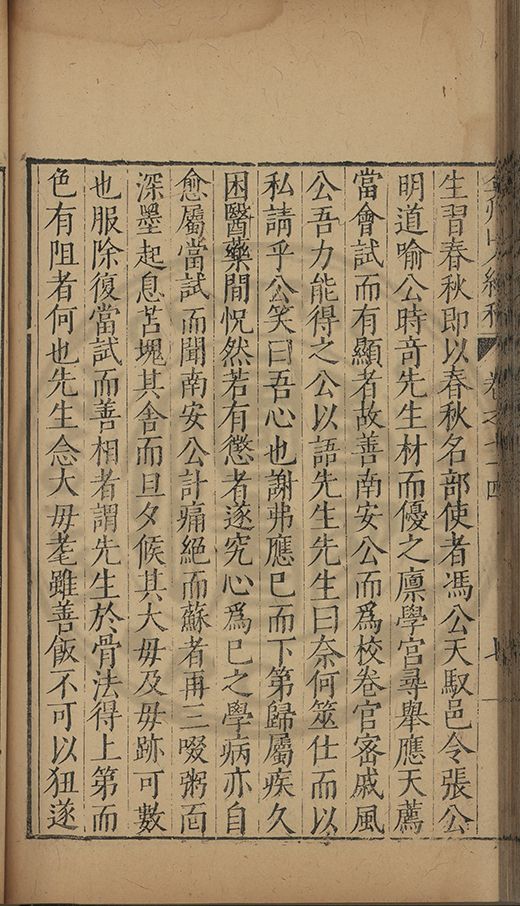 生習春秋即以春秋名部使者馮公天馭邑令張公
明道喻公時竒先生材而優之廪學宮尋舉應天薦
當會試而有顯者故善南安公而爲校卷官宻戚風
公吾力能得之公以語先生先生曰奈何筮仕而以
私請乎公笑曰吾心也謝弗應巳而下第歸屬疾久
困醫藥間怳然若有懲者遂究心爲巳之學病亦自
愈屬當試而聞南安公訃痛絕而蘇者再三啜粥靣
深墨起息苫塊其舍而旦夕候其大毋及毋跡可數
也服除復當試而善相者謂先生於骨法得上第而
色有阻者何也先生念大毋耄雖善飯不可以狃遂